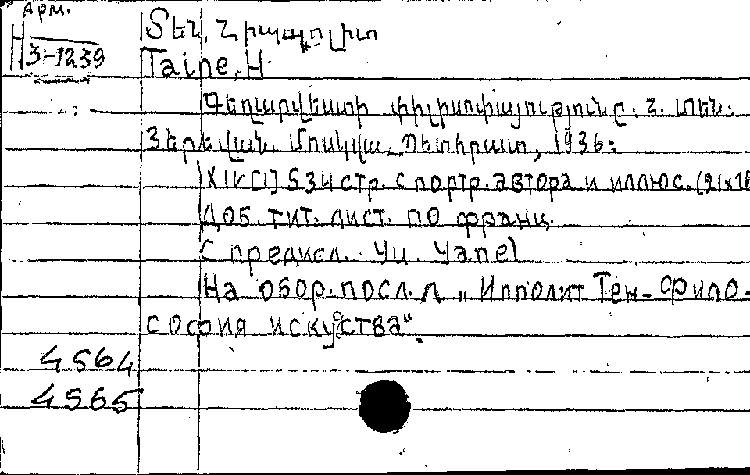 Арм.
Н 3-1239
Տեն, Հիպպոլիտ
Taine, H
Գեղարվեստի փիլիսոփայությունը. Հ. Տեն.
Յերեվան. Մոսկվա, Պետհրատ, 1936:
534 стр. с портр. автора и иллюс.
Доб. тит. лист. по франц.
С предисл.
На обор. посл. л „Ипполит Тен- Фило-
софия искусства“.
4564
4565